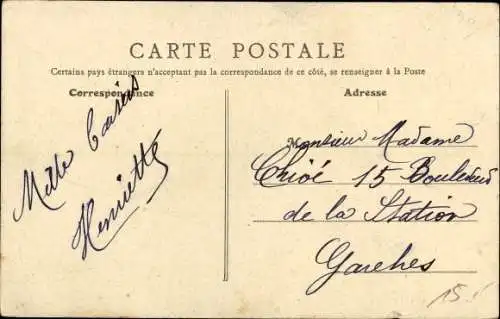 CARTE POSTALE
Certains pays étrangers n'acceptant pas la correspondance de ce côté, se renseigner à la Poste
Correspondance
Adresse
Mille Caresses
Henriette
Monsieur Madame
15 Boulevard
de la Station
Garches
15